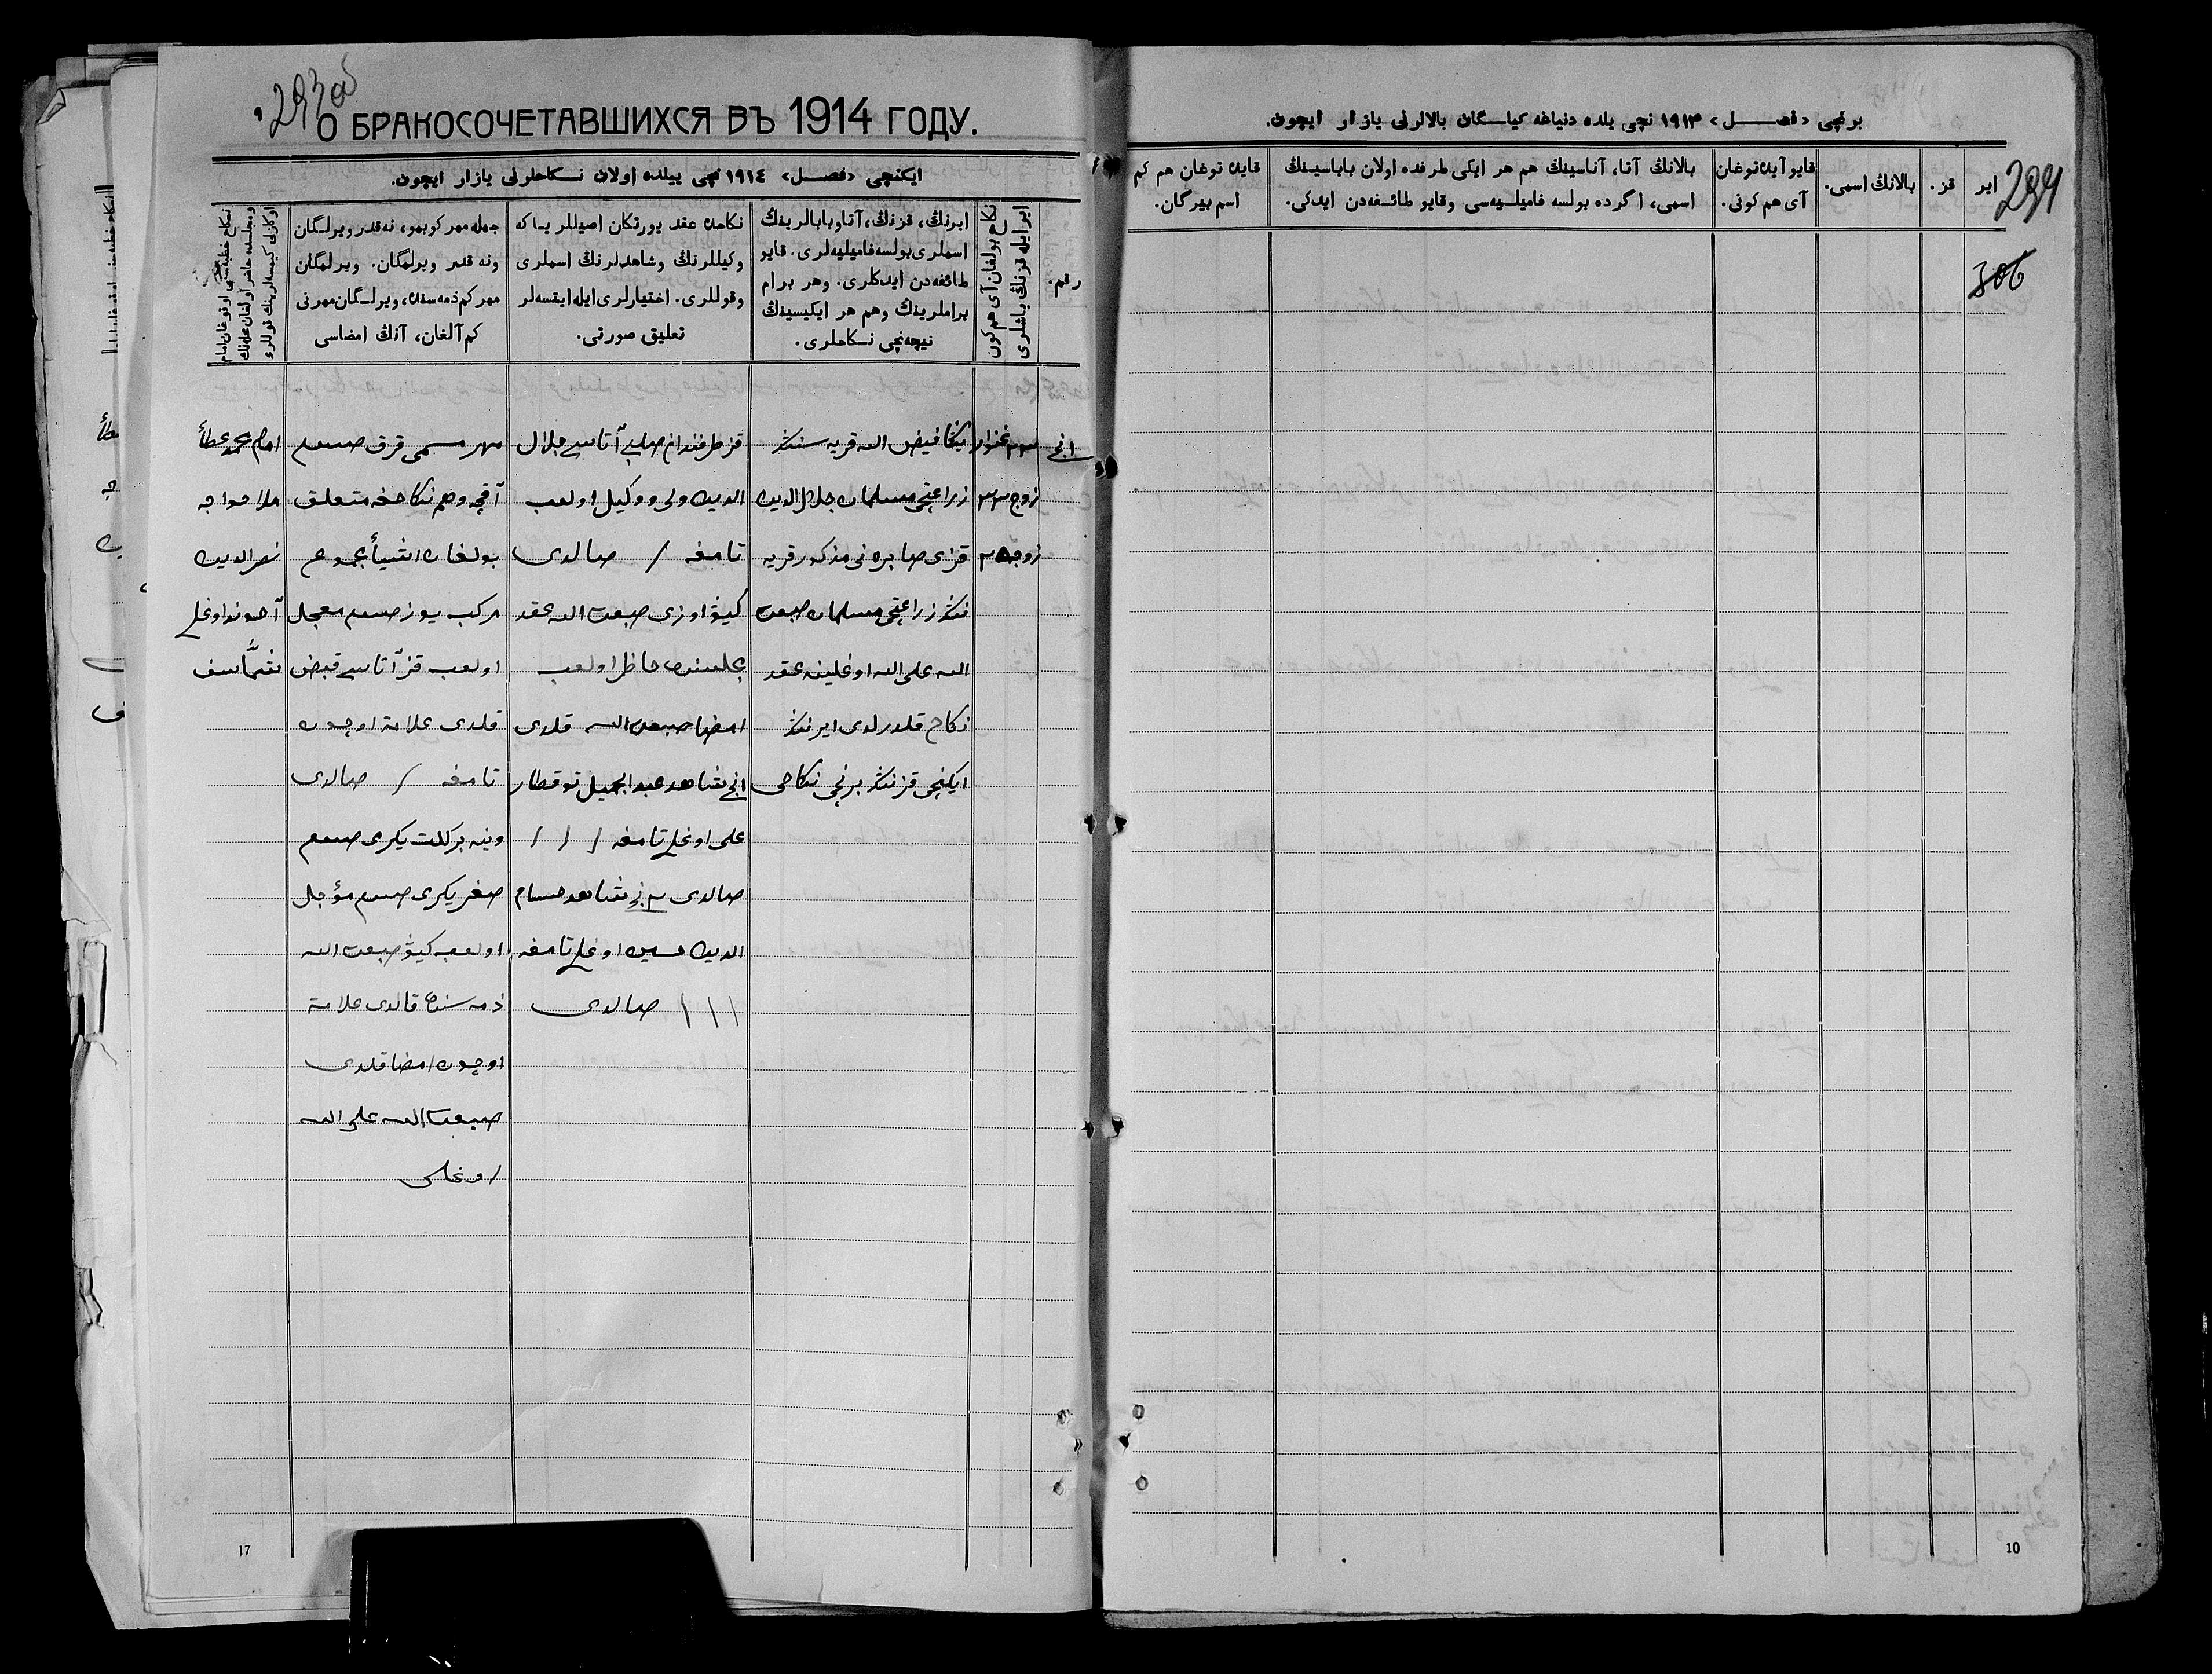 293 об
О БРАКОСОЧЕТАВШИХСЯ ВЪ 1914 ГОДУ.
ایکنچی «فصل» ١٩١٤ نچی ییلده اولان نکاحلرنی یازار ایچون.
رقم.
ایر ایله قزنڭ یاشلری
نکاح بولغان آی هم کون
ایرنڭ، قزنڭ، آتا وبابالرینڭ
اسملری بولسه فامیلیه‌لری. قایو
طائفه‌دن ایدکلری. وهر برام
براملرینڭ وهم هر ایکیسینڭ
نیچه‌نچی نکاحلری.
نکاحده عقد یورتکان اصیللر یاکه
وکیللرنڭ وشاهدلرنڭ اسملری
وقوللری. اختیارلری ایله ایتسه‌لر
تعلیق صورتی.
جمله مهر کوبمو، نه‌قدر ویرلگان
ونه قدر ویرلمگان. ویرلمگان
مهر کم ذمه‌سنده، ویرلگان مهرنی
کم آلغان، آنڭ امضاسی
نکاح خطبه‌سی اوقوغان امام
١نچی
٢٣ غنوار
زوج ٣٣
زوجه
فیض الله قریه سننڭ
زراعتچی مسلمان جلال الدین
قزی صابره نی مذکور قریه
ننڭ زراعتچی مسلمان صبغت
الله علی الله اوغلینه عقد
نکاح قلدرلدی ایرننڭ
ایکنچی قزننڭ برنچی نکاحی
قز طرفندان صلبی آتاسی جلال
الدین ولی و وکیل اولوب
تامغه / صالدی
کیاو اوزی صبغت الله عقد
مجلسنده حاظر اولوب
امضا صبغت الله قلدی
١نچی شاهد عبد الجمیل توقطار
علی اوغلی تامغه / / /
صالدی ٢نچی شاهد حسام
الدین حسین اوغلی تامغه
/ / / صالدی
مهر مسمی قرق صوم
آقچه وهم نکاحغه متعلق
بولغان اشیأ مجموع
مرکب یوز صوم معجل
اولوب قز آتاسی قبض
قلدی علامة اوچون
تامغه / صالدی
وینه برکلت یکرمی صوم
صغر یکرمی صوم مؤجل
اولوب کیاو صبغت الله
ذمه سنده قالدی علامة
اوچون امضا قلدی
صبغت الله علی الله
اوغلی
امام محمد عطأ
ملا خواجه
نصر الدین
آخوند اوغلی
شمّاسف
17
برنچی «فصل» ١٩١٤ نچی یلده دنیاغه کیاسگان بالالرنی یازار ایچون.
ایر
قز.
بالانڭ اسمی.
قایو آیده توغان
آی هم کونی.
بالانڭ آتا، آناسینڭ هم هر ایکی طرفده اولان باباسینڭ
اسمی، اگرده بولسه فامیلیه‌سی وقایو طائفه‌دن ایدکی.
قایده توغان هم کم
اسم بیرگان.
294
306
10